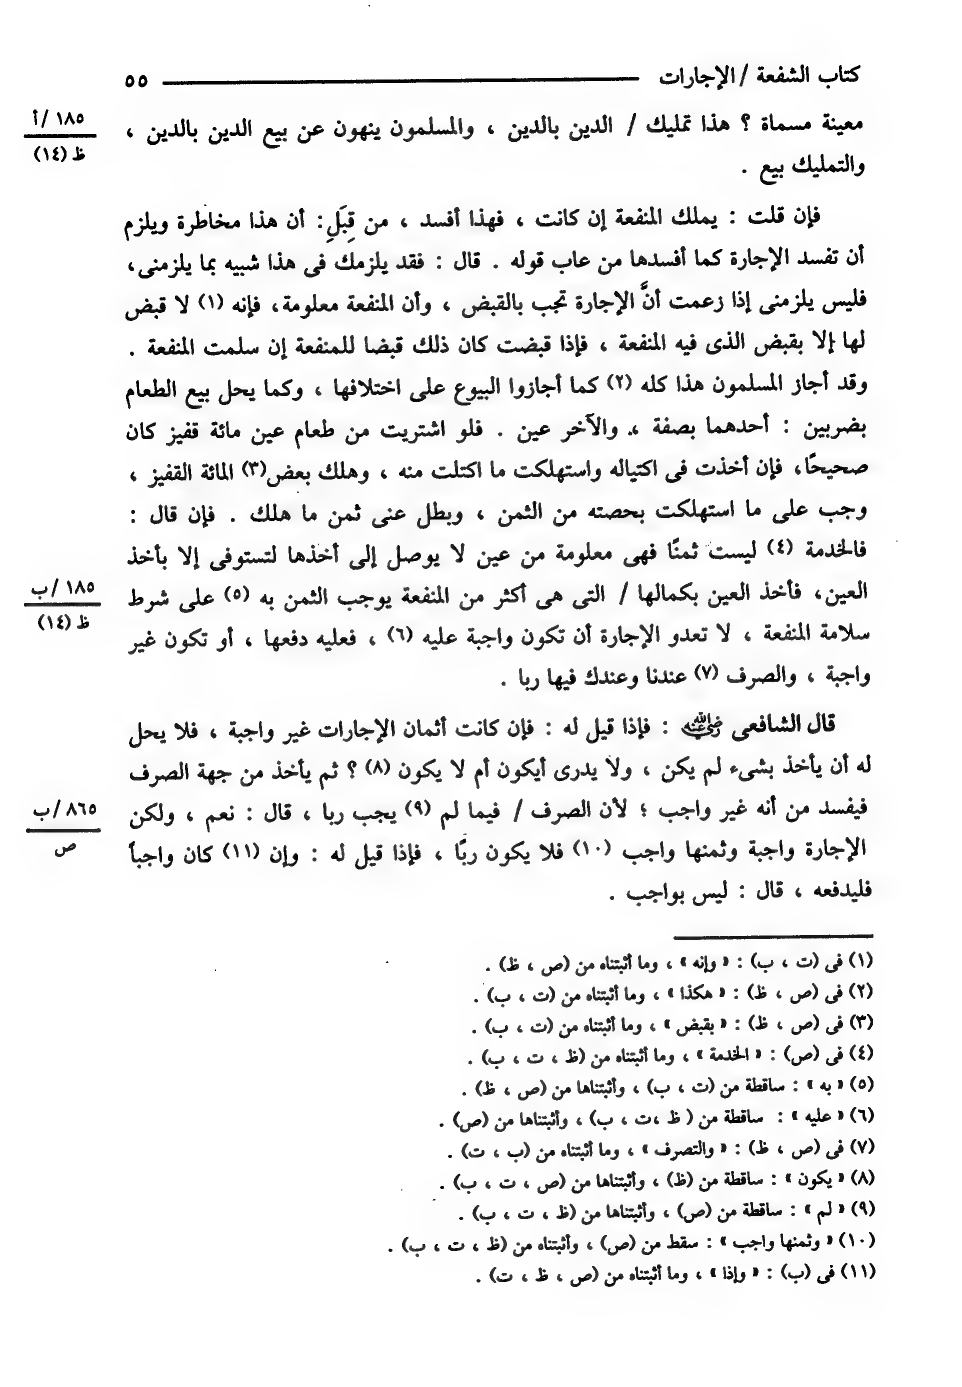 كتاب الشفعة / الإجارات ٥٥
معينة مسماة ؟ هذا تمليك / الدين بالدين ، والمسلمون ينهون عن بيع الدين بالدين ،
١٨٥ / أ
ظ (١٤)
والتمليك بيع .
فإن قلت : يملك المنفعة إن كانت ، فهذا أفسد ، من قِبَلِ : أن هذا مخاطرة ويلزم
أن تفسد الإجارة كما أفسدها من عاب قوله . قال : فقد يلزمك فى هذا شبيه بما يلزمنى،
فليس يلزمنى إذا زعمت أنَّ الإجارة تجب بالقبض ، وأن المنفعة معلومة، فإنه (١) لا قبض
لها إلا بقبض الذى فيه المنفعة ، فإذا قبضت كان ذلك قبضا للمنفعة إن سلمت المنفعة .
وقد أجاز المسلمون هذا كله (٢) كما أجازوا البيوع على اختلافها ، وكما يحل بيع الطعام
بضربين : أحدهما بصفة ، والآخر عين . فلو اشتريت من طعام عين مائة قفيز كان
صحيحًا، فإن أخذت فى اكتياله واستهلكت ما اكتلت منه ، وهلك بعض(٣) المائة القفيز ،
وجب على ما استهلكت بحصته من الثمن ، وبطل عنى ثمن ما هلك . فإن قال :
فالخدمة (٤) ليست ثمنًا فهى معلومة من عين لا يوصل إلى أخذها لتستوفى إلا بأخذ
العين، فأخذ العين بكمالها / التى هى أكثر من المنفعة يوجب الثمن به (٥) على شرط
١٨٥ / ب
ظ (١٤)
سلامة المنفعة ، لا تعدو الإجارة أن تكون واجبة عليه (٦) ، فعليه دفعها ، أو تكون غير
واجبة ، والصرف (٧) عندنا وعندك فيها ربا .
قال الشافعى رضي الله عنه : فإذا قيل له : فإن كانت أثمان الإجارات غير واجبة ، فلا يحل
له أن يأخذ بشىء لم يكن ، ولا يدرى أيكون أم لا يكون (٨) ؟ ثم يأخذ من جهة الصرف
فيفسد من أنه غير واجب ؛ لأن الصرف / فيما لم (٩) يجب ربا ، قال : نعم ، ولكن
٨٦٥ / ب
ص
الإجارة واجبة وثمنها واجب (١٠) فلا يكون ربًا ، فإذا قيل له : وإن (١١) كان واجباً
فليدفعه ، قال : ليس بواجب .
(١) فى (ت ، ب) : « وإنه » ، وما أثبتناه من (ص ، ظ) .
(٢) فى (ص ، ظ) : « هكذا » ، وما أثبتناه من (ت ، ب) .
(٣) فى (ص ، ظ) : « بقبض » ، وما أثبتناه من (ت ، ب) .
(٤) فى (ص) : « الخدمة » ، وما أثبتناه من (ظ ، ت ، ب) .
(٥) « به » : ساقطة من (ت ، ب) ، وأثبتناها من (ص ، ظ) .
(٦) « عليه » : ساقطة من ( ظ ،ت ، ب) ، وأثبتناها من (ص) .
(٧) فى (ص ، ظ) : « والتصرف » ، وما أثبتناه من (ب ، ت) .
(٨) « يكون » : ساقطة من (ظ) ، وأثبتناها من (ص ، ت ، ب) .
(٩) « لم » : ساقطة من (ص) ، وأثبتناها من (ظ ، ت ، ب) .
(١٠) « وثمنها واجب » : سقط من (ص) ، وأثبتناه من (ظ ، ت ، ب) .
(١١) فى (ب) : « وإذا » ، وما أثبتناه من (ص ، ظ ، ت) .